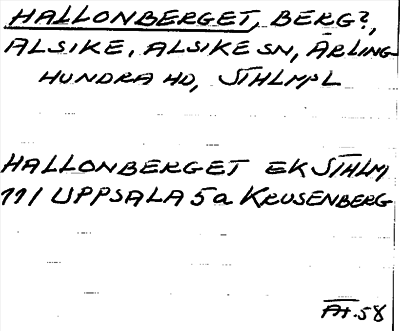 HALLONBERGET, BERG?,
ALSIKE, ALSIKE SN, ÄRLING-
HUNDRA HD, STHLMS L
HALLONBERGET EK STHLM
111 UPPSALA 5a KRUSENBERG
ÄH.58